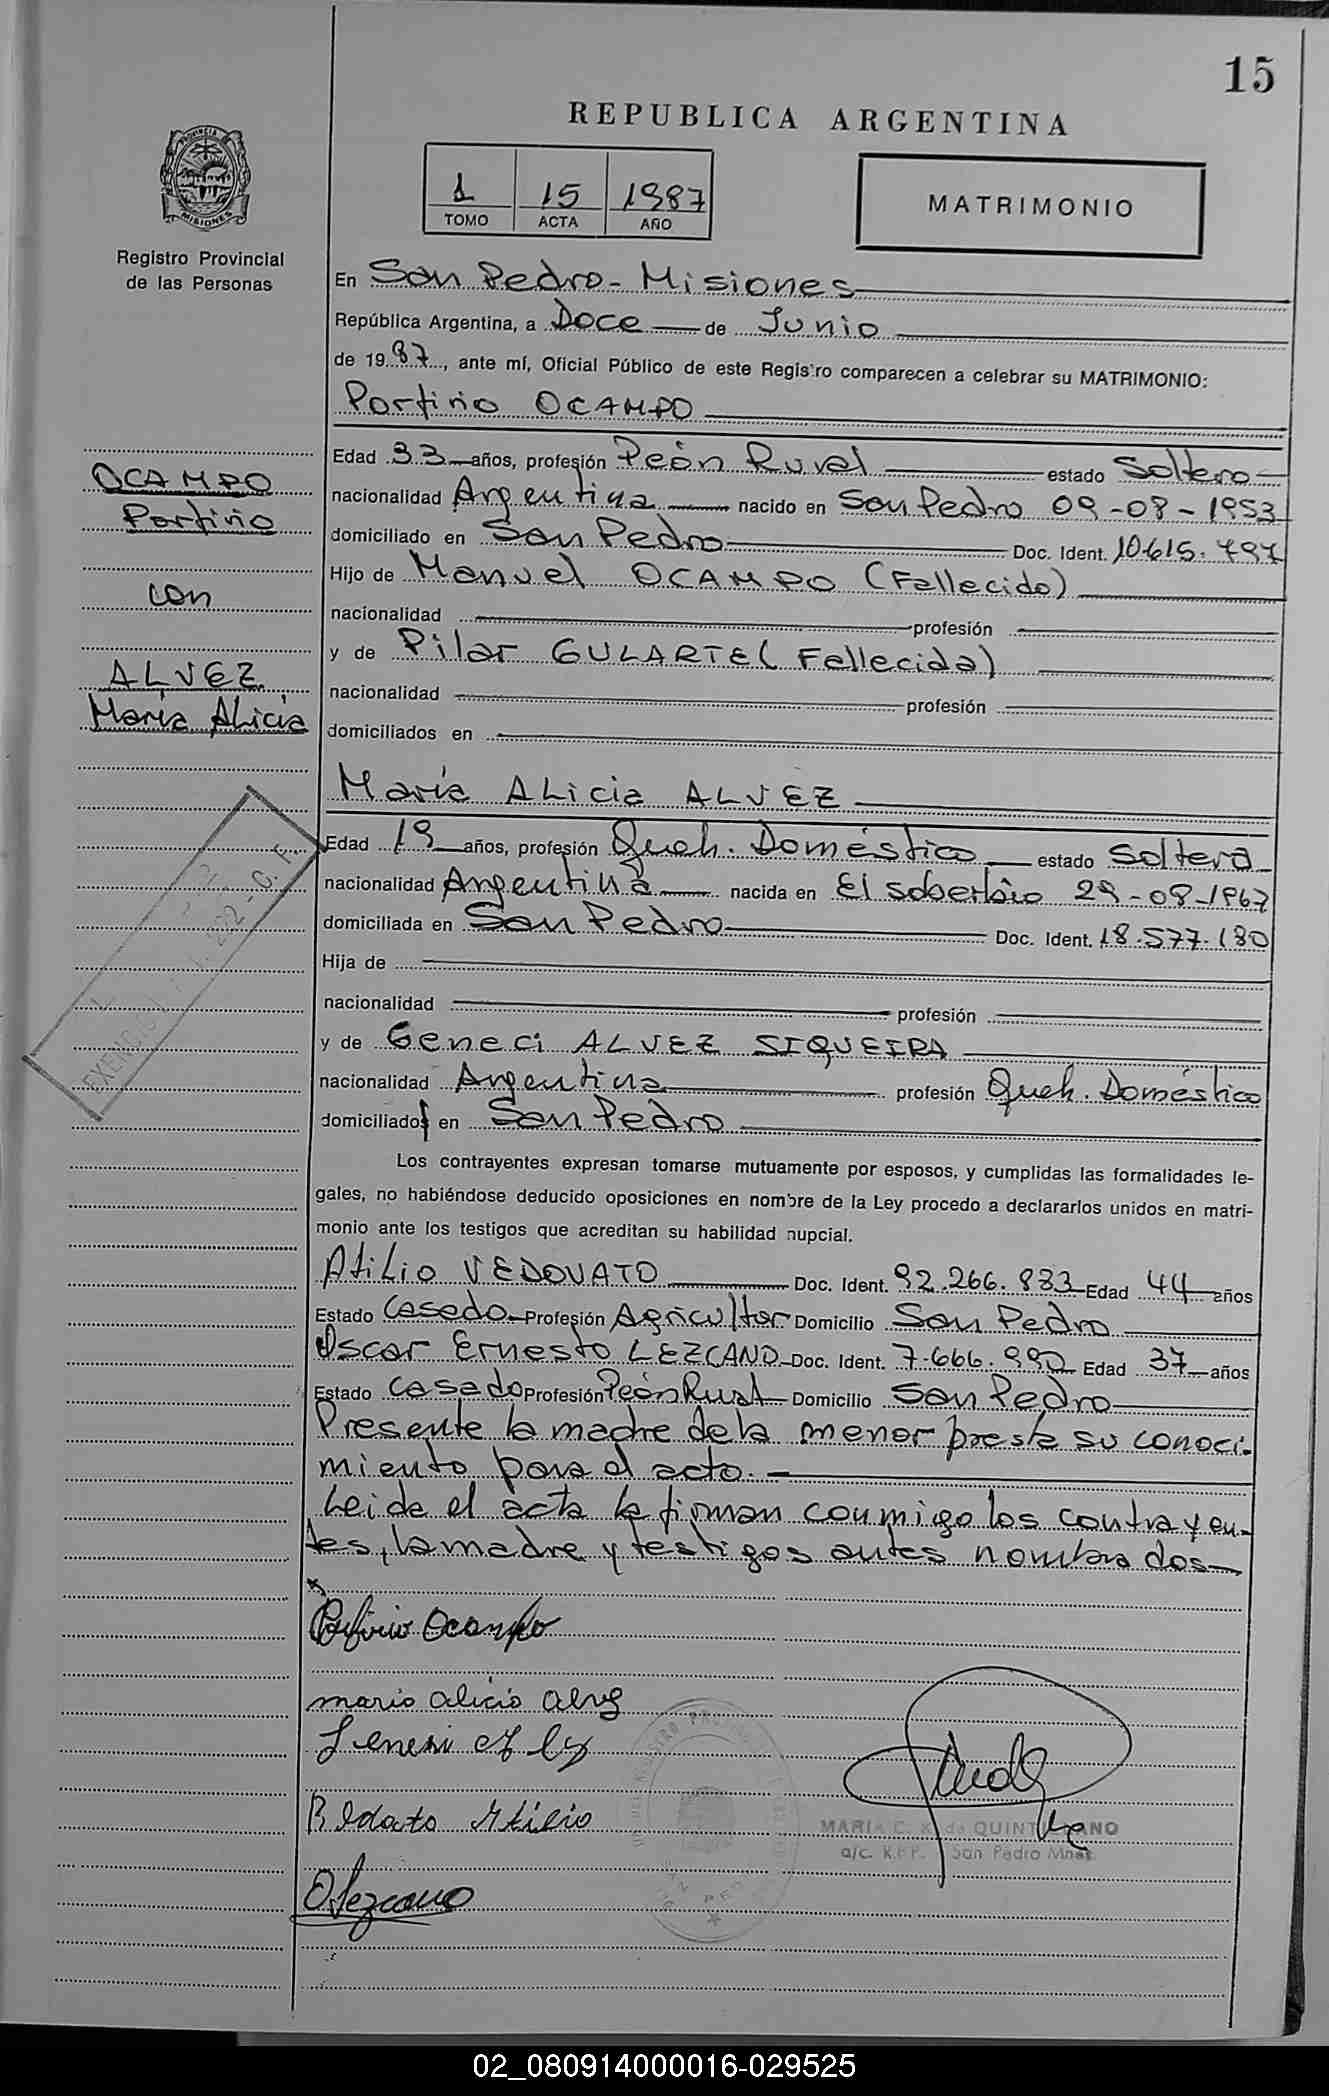 15
REPUBLICA ARGENTINA
PROVINCIA DE MISIONES
Registro Provincial
de las Personas
1 15 1987
TOMO ACTA AÑO
MATRIMONIO
En San Pedro - Misiones
República Argentina, a Doce de Junio
de 1987, ante mí, Oficial Público de este Registro comparecen a celebrar su MATRIMONIO:
Porfirio OCAMPO
OCAMPO
Porfirio
con
ALVEZ
María Alicia
Edad 33 años, profesión Peón Rural estado Soltero
nacionalidad Argentina nacido en San Pedro 09-08-1953
domiciliado en San Pedro Doc. Ident. 10.615.797
Hijo de Manuel OCAMPO (Fallecido)
nacionalidad profesión
y de Pilar GULARTE (Fallecida)
nacionalidad profesión
domiciliados en
María Alicia ALVEZ
Edad 19 años, profesión Queh. Doméstico estado Soltera
nacionalidad Argentina nacida en El Soberbio 29-08-1967
domiciliada en San Pedro Doc. Ident. 18.577.180
Hija de
nacionalidad profesión
y de Geneci ALVEZ SIQUEIRA
nacionalidad Argentina profesión Queh. Doméstico
domiciliados en San Pedro
Los contrayentes expresan tomarse mutuamente por esposos, y cumplidas las formalidades le-
gales, no habiéndose deducido oposiciones en nombre de la Ley procedo a declararlos unidos en matri-
monio ante los testigos que acreditan su habilidad nupcial.
Atilio VEDOVATO Doc. Ident. 92.266.833 Edad 44 años
Estado Casado Profesión Agricultor Domicilio San Pedro
Oscar Ernesto LEZCANO Doc. Ident. 7.666.990 Edad 37 años
Estado Casado Profesión Peón Rural Domicilio San Pedro
Presente la madre de la menor presta su conoci-
miento para el acto.-
Leida el acta la firman conmigo los contrayen-
tes, la madre y testigos antes nombrados-
Porfirio Ocampo
maria alicia alvez
Atilio
O Lezcano
MARIA C. K. de QUINTANO
a/c. San Pedro Mnes.
02_080914000016-029525